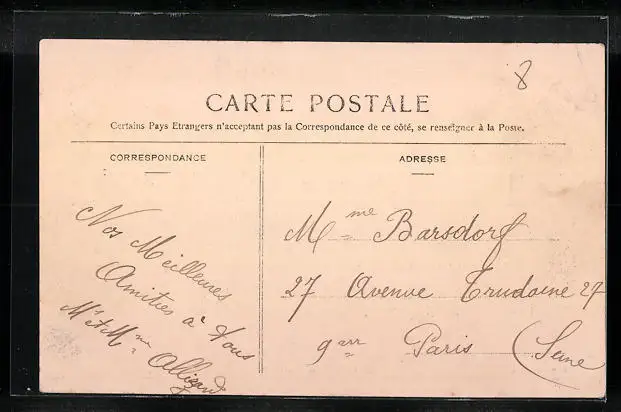 8
CARTE POSTALE
Certains Pays Etrangers n'acceptent pas la Correspondance de ce côté, se renseigner à la Poste.
CORRESPONDANCE
Nos Meilleures
Amitiés à Vous
Mr et Mme
ADRESSE
Mme Barsdorf
27 Avenue Trudaine 27
9arr Paris (Seine